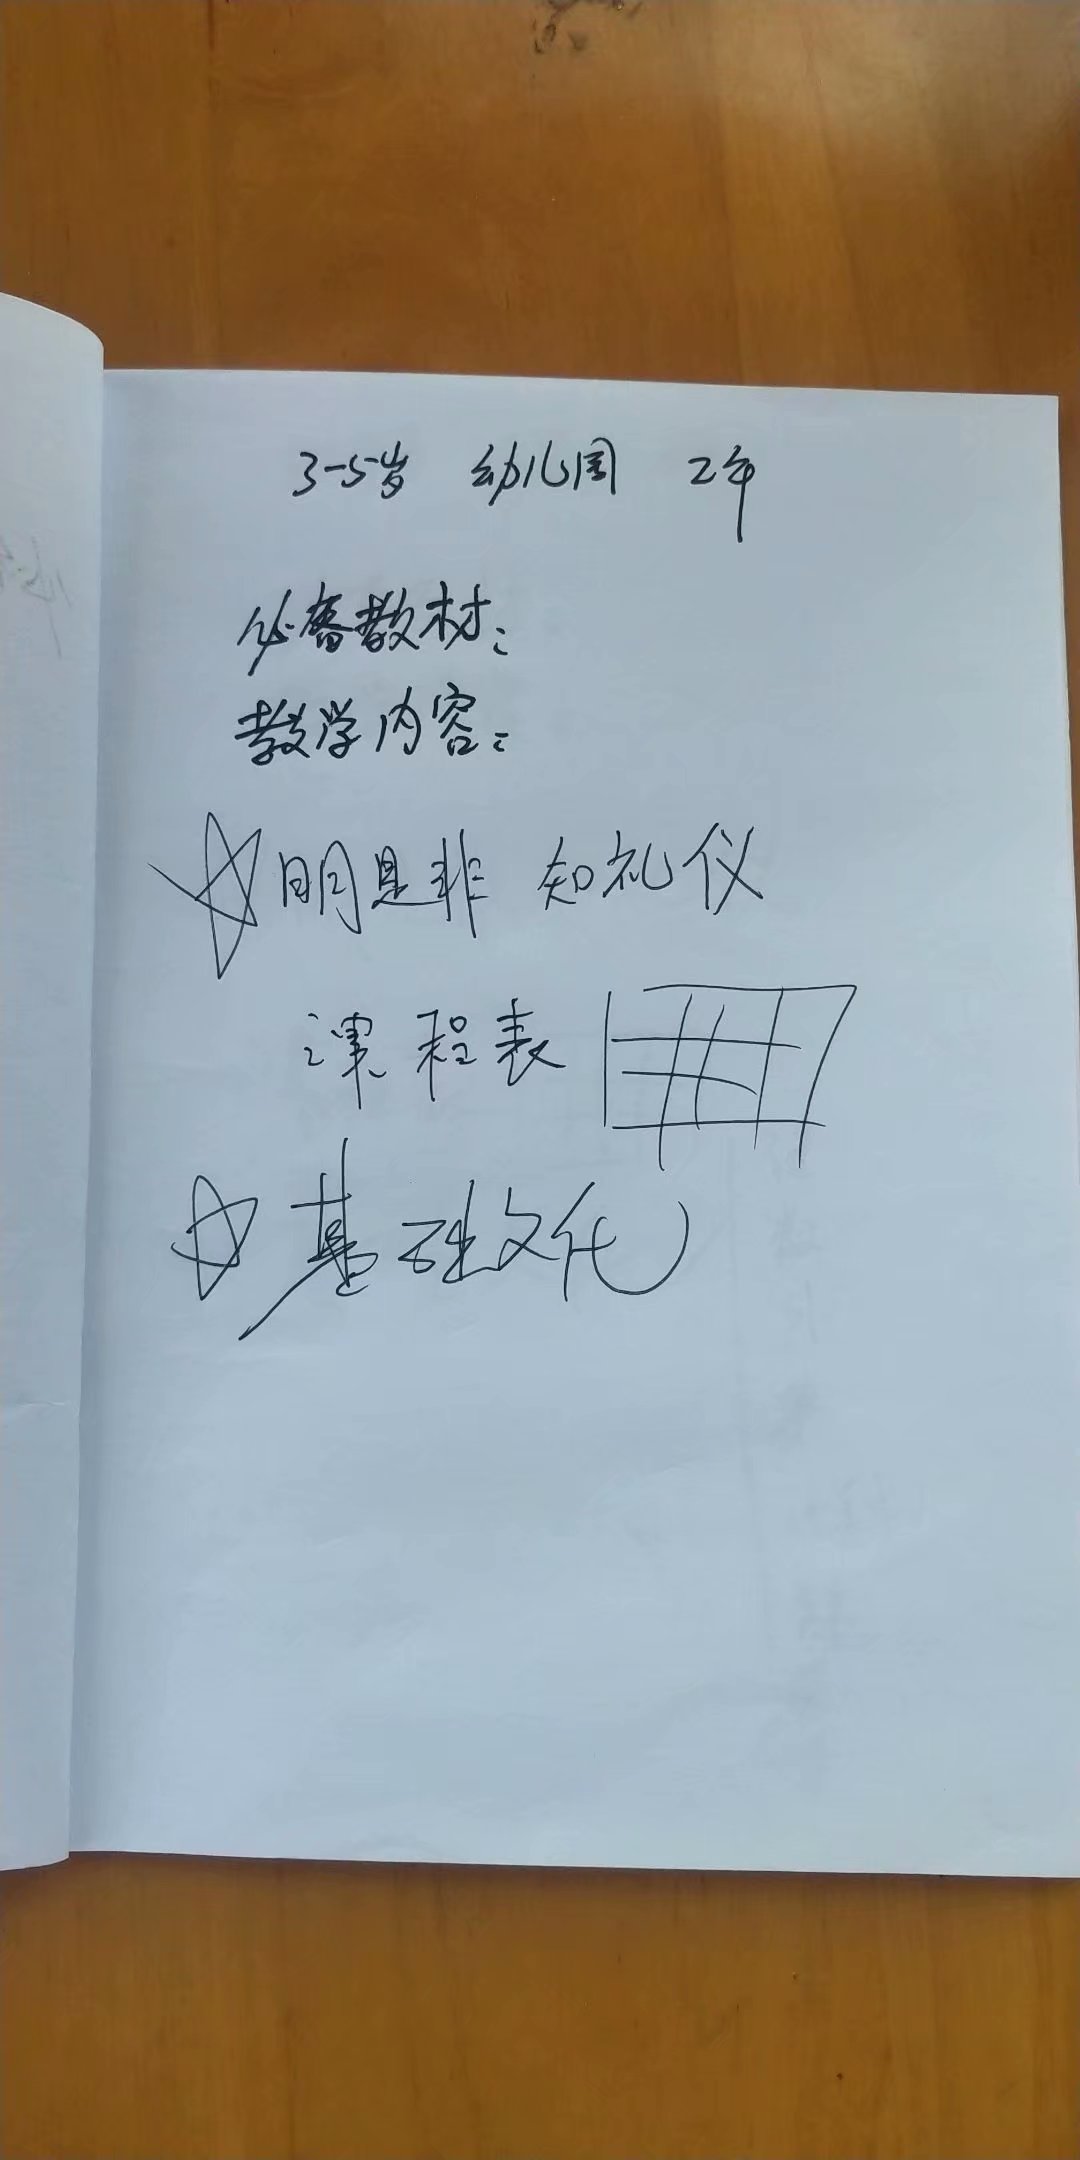 3-5岁 幼儿园 2年
必备教材：
教学内容：
明是非 知礼仪
课程表
基础文化